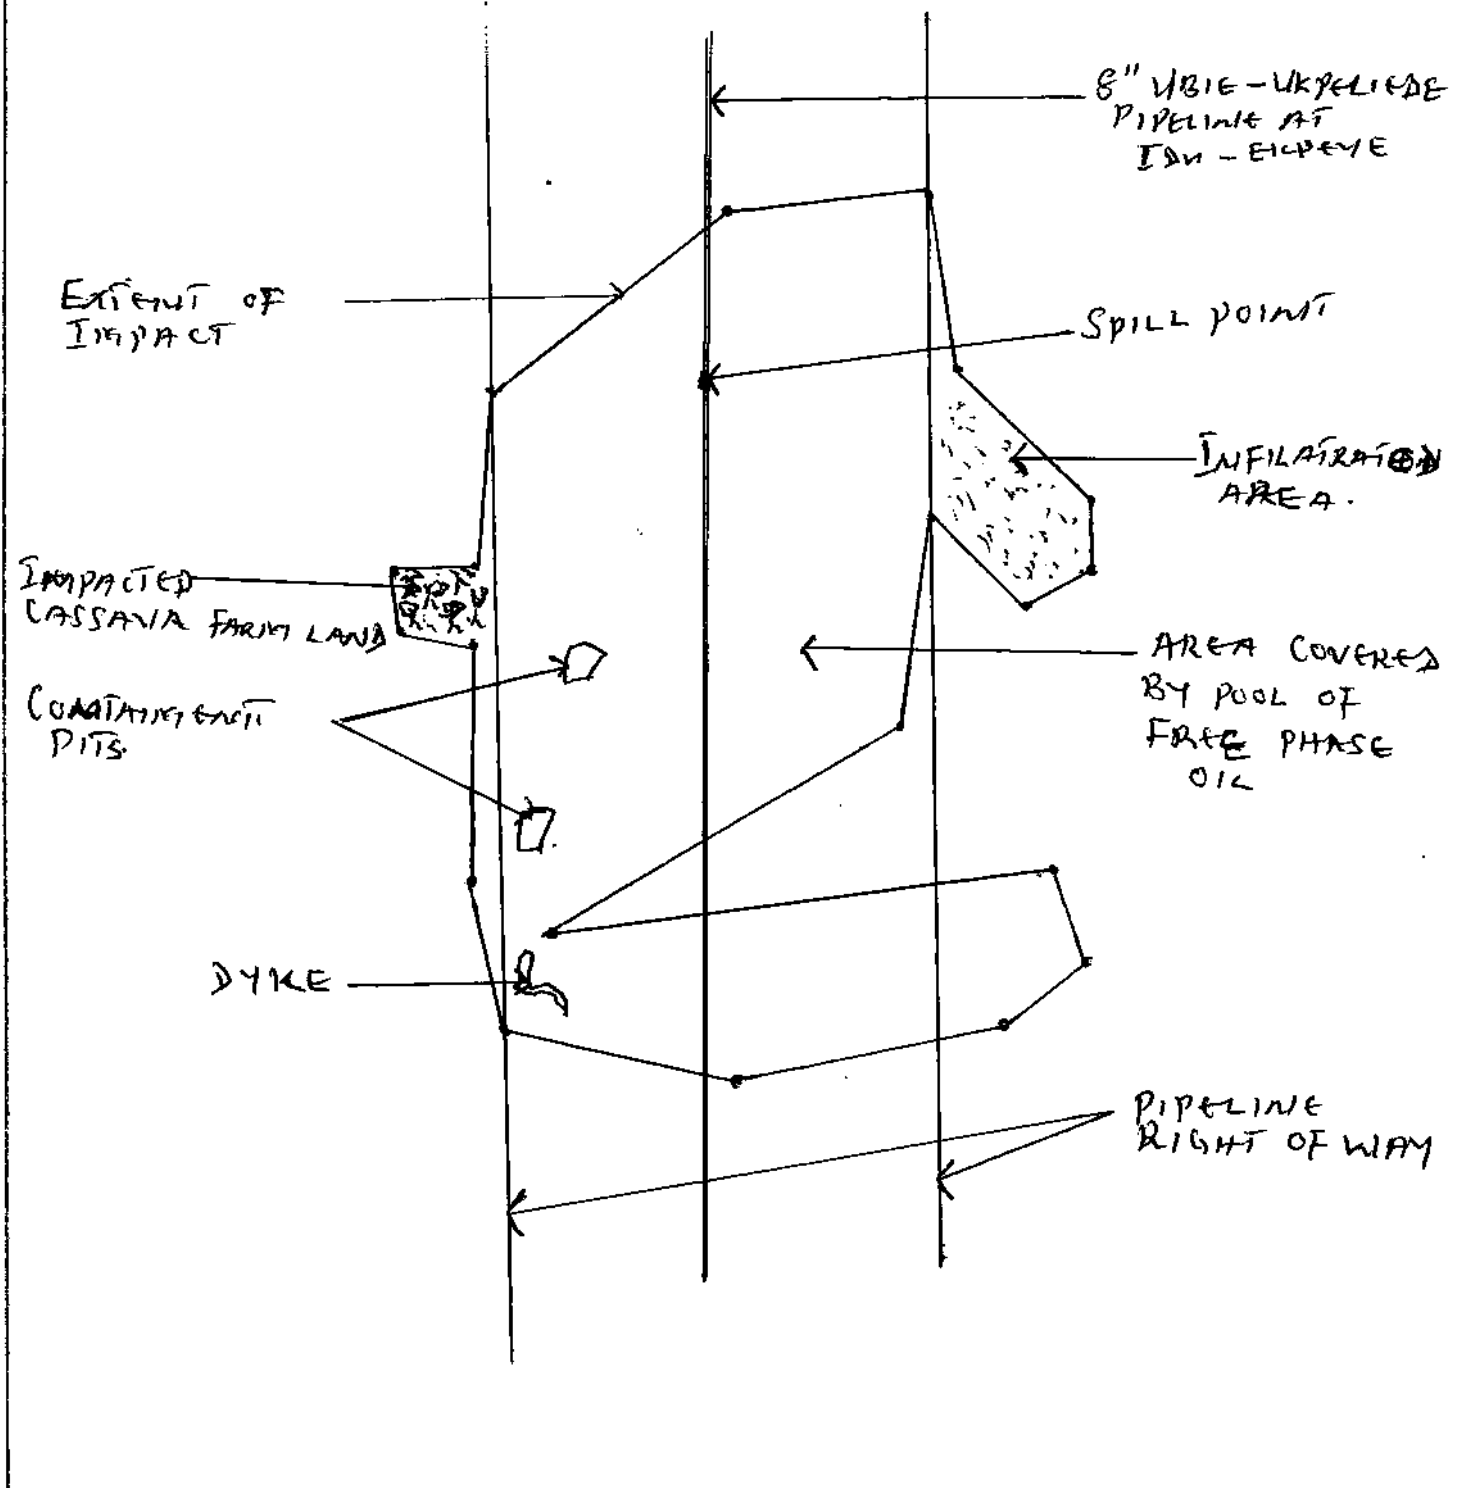 8" UBIE - UKPELIEDE
PIPELINE AT
IDU - EKPEYE
EXTENT OF
IMPACT
SPILL POINT
INFILATRATION
AREA.
IMPACTED
CASSAVA FARM LAND
AREA COVERED
BY POOL OF
FREE PHASE
OIL
CONTAINMENT
PITS.
DYKE
PIPELINE
RIGHT OF WAY